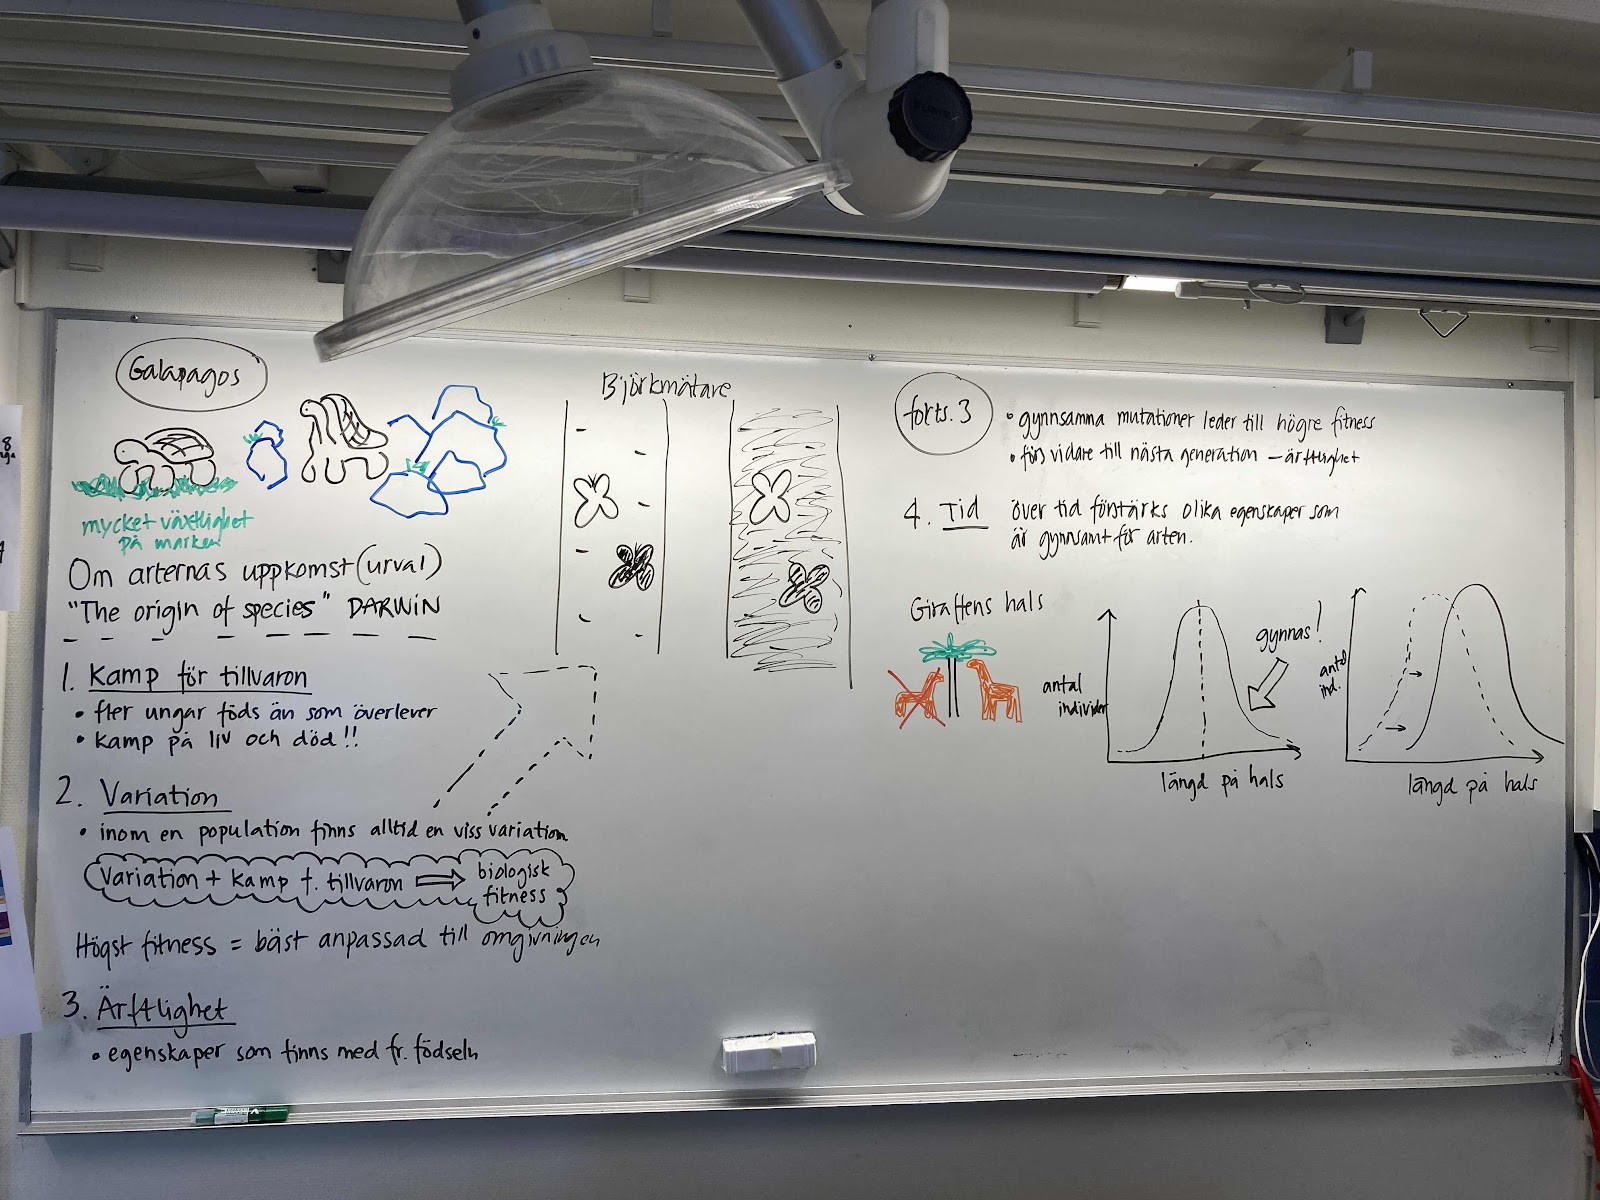 Galapagos
mycket växtlighet
på marken
Om arternas uppkomst (urval)
"The origin of species" DARWIN
1. Kamp för tillvaron
• fler ungar föds än som överlever
• kamp på liv och död!!
2. Variation
• inom en population finns alltid en viss variation
Variation + kamp f. tillvaron ⇒ biologisk
fitness
Högst fitness = bäst anpassad till omgivningen
3. Ärftlighet
• egenskaper som finns med fr. födseln
Björkmätare
forts. 3
• gynnsamma mutationer leder till högre fitness
• förs vidare till nästa generation – ärftlighet
4. Tid över tid förstärks olika egenskaper som
är gynnsamt för arten.
Giraffens hals
antal
individer
gynnas!
längd på hals
antal
ind.
längd på hals